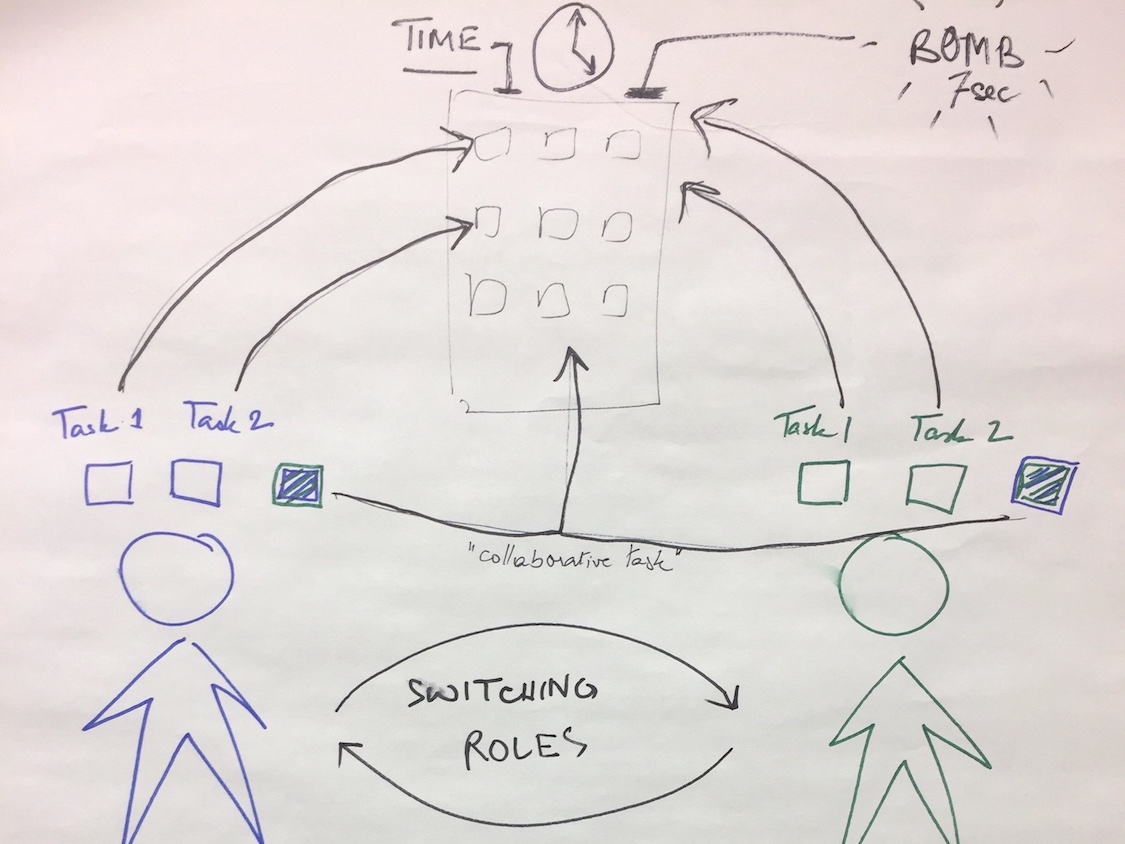 TIME
BOMB
7sec
Task 1
Task 2
Task 1
Task 2
"collaborative task"
SWITCHING
ROLES